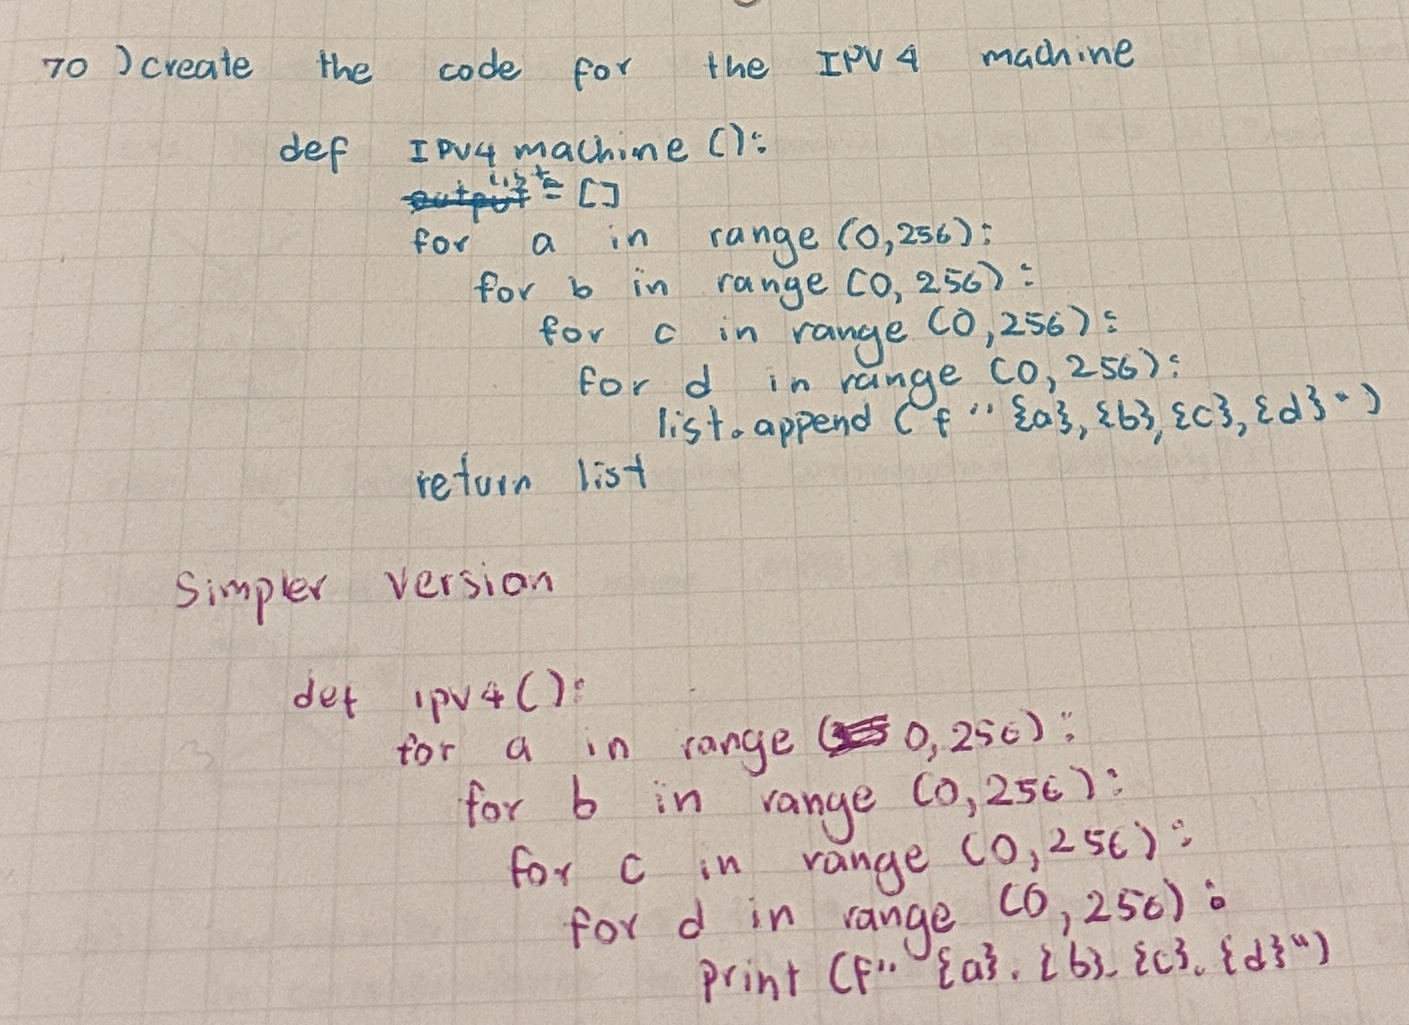 70 ) create the code for the IPV 4 machine
def IPV4 machine ():
list = []
for a in range (0,256):
for b in range (0, 256):
for c in range (0,256):
for d in range (0, 256):
list.append (f "{a}, {b}, {c}, {d}")
return list
Simpler version
def ipv4():
for a in range (0, 256):
for b in range (0,256):
for c in range (0,256):
for d in range (0,256):
print (f" {a}. {b}. {c}. {d}")